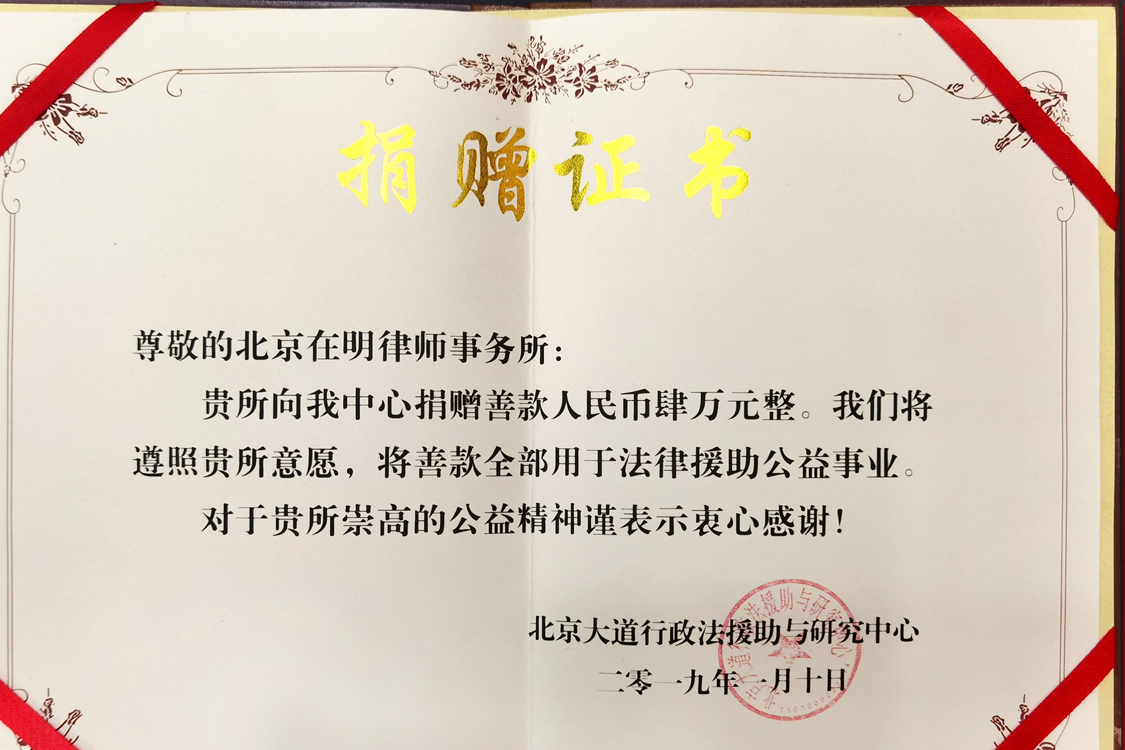 捐赠证书
尊敬的北京在明律师事务所：
贵所向我中心捐赠善款人民币肆万元整。我们将
遵照贵所意愿，将善款全部用于法律援助公益事业。
对于贵所崇高的公益精神谨表示衷心感谢！
北京大道行政法援助与研究中心
二零一九年一月十日